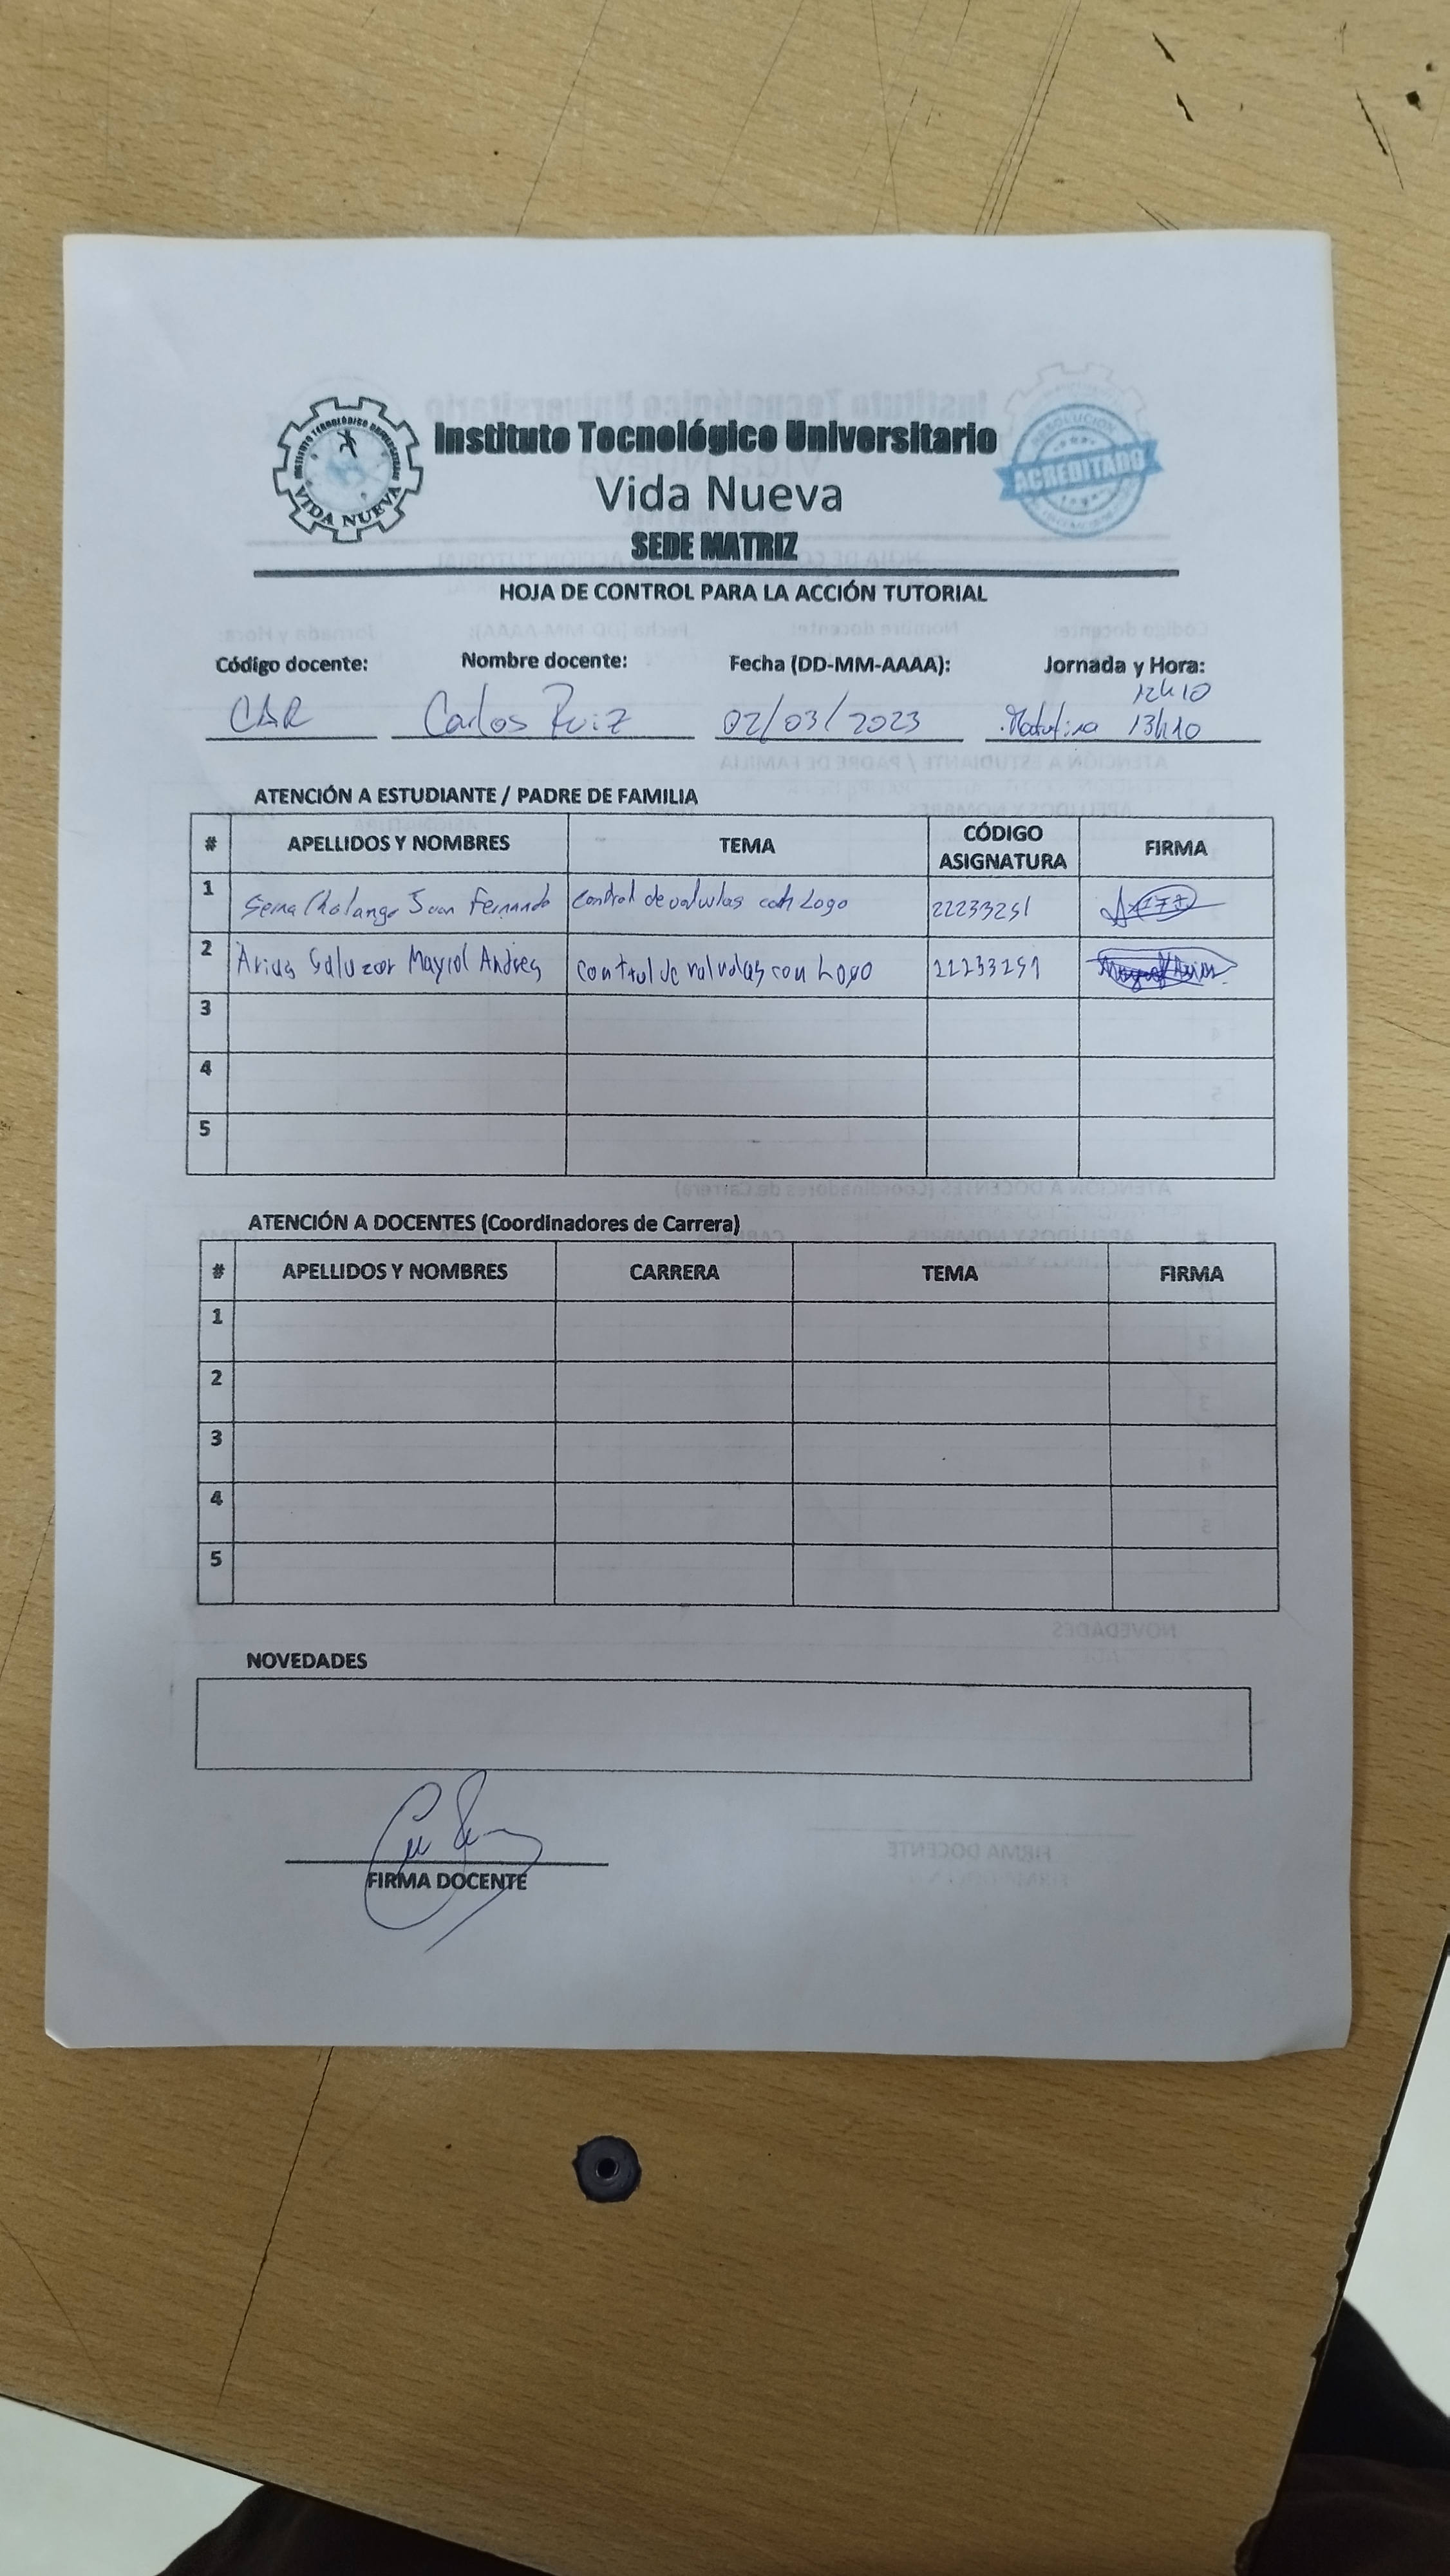 INSTITUTO TECNOLÓGICO UNIVERSITARIO
VIDA NUEVA
Instituto Tecnológico Universitario
Vida Nueva
SEDE MATRIZ
RESOLUCIÓN
ACREDITADO
HOJA DE CONTROL PARA LA ACCIÓN TUTORIAL
Código docente: Nombre docente: Fecha (DD-MM-AAAA): Jornada y Hora:
12h10
Carlos Ruiz 02/03/2023 Matutina 13h10
ATENCIÓN A ESTUDIANTE / PADRE DE FAMILIA
# APELLIDOS Y NOMBRES TEMA CÓDIGO ASIGNATURA FIRMA
1 Serna Cholango Juan Fernando Control de valvulas con Logo 22233251
2 Arias Salazar Maycol Andres control de valvulas con Logo 22233251
3
4
5
ATENCIÓN A DOCENTES (Coordinadores de Carrera)
# APELLIDOS Y NOMBRES CARRERA TEMA FIRMA
1
2
3
4
5
NOVEDADES
FIRMA DOCENTE